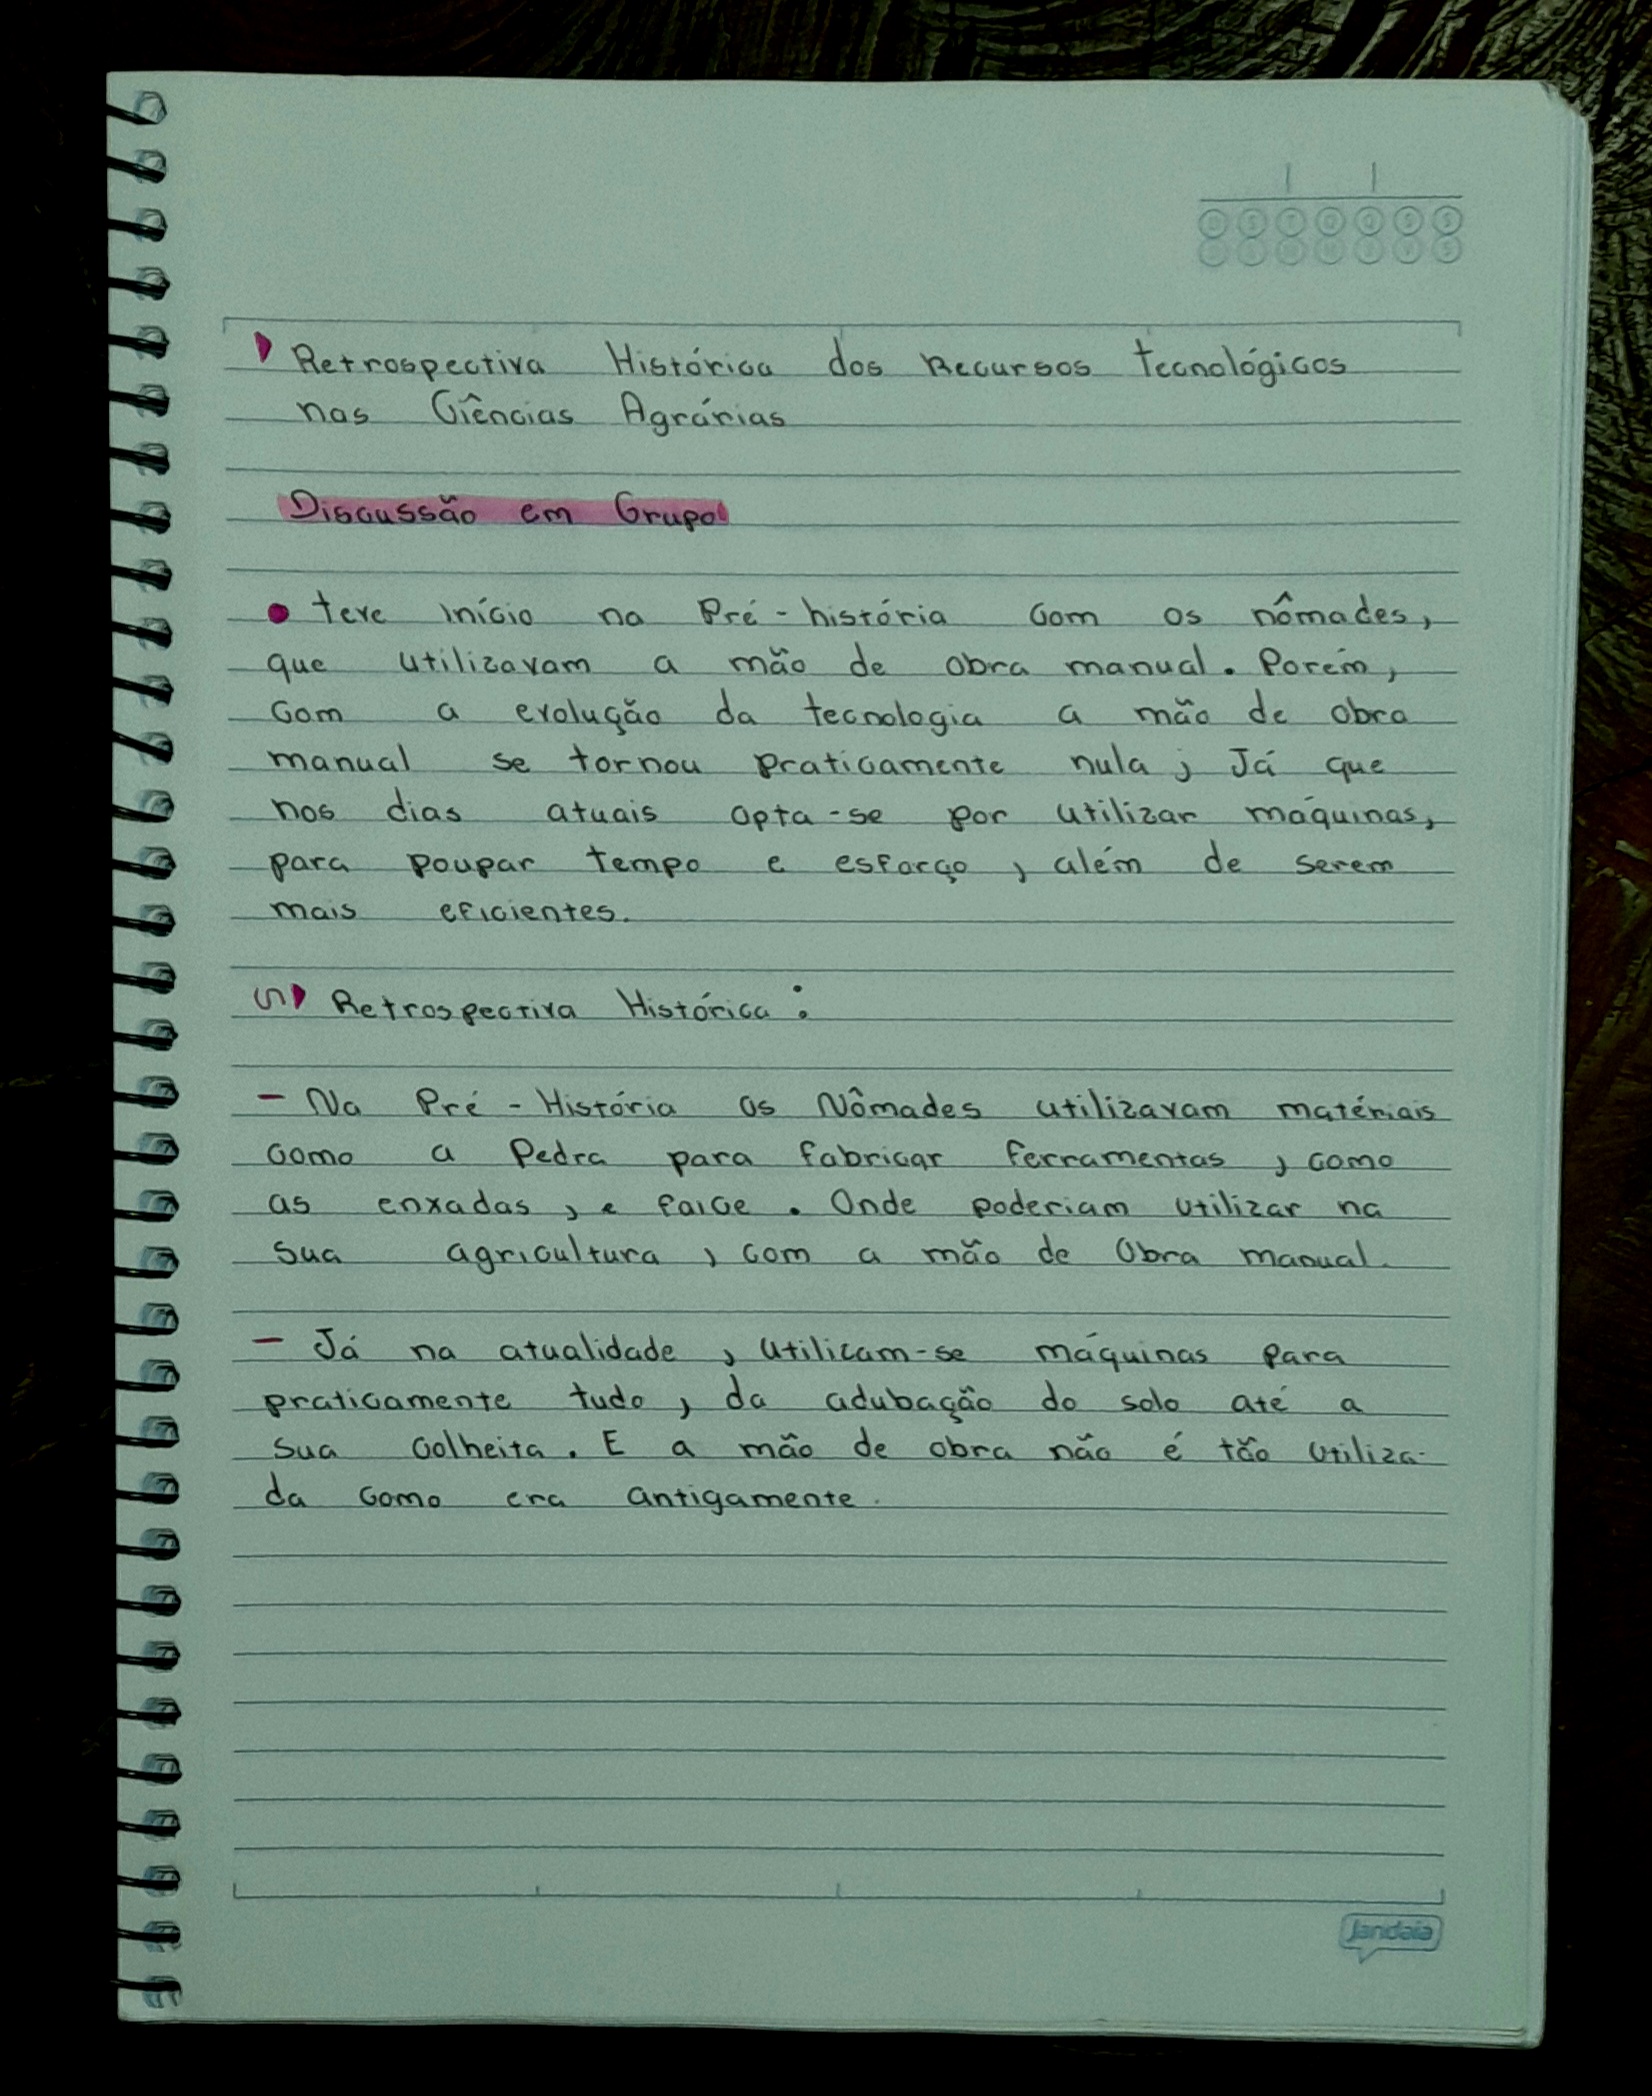 Retrospectiva Histórica dos Recursos tecnológicos
nas Ciências Agrárias
Discussão em Grupo
• teve início na Pré-história com os nômades,
que utilizavam a mão de obra manual. Porém,
com a evolução da tecnologia a mão de obra
manual se tornou praticamente nula, Já que
nos dias atuais opta-se por utilizar máquinas,
para poupar tempo e esforço, além de serem
mais eficientes.
Retrospectiva Histórica:
- Na Pré-História os Nômades utilizavam matériais
como a Pedra para fabricar ferramentas, como
as enxadas, e foice. Onde poderiam utilizar na
sua agricultura, com a mão de Obra manual.
- Já na atualidade, utilizam-se máquinas para
praticamente tudo, da adubação do solo até a
sua colheita. E a mão de obra não é tão utiliza-
da como era antigamente.
Jandaia